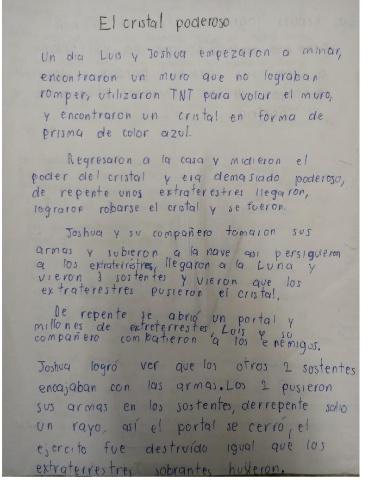 El cristal poderoso
Un dia Luis y Joshua empezaron a minar,
encontraron un muro que no lograban
romper, utilizaron TNT para volar el muro,
y encontraron un cristal en forma de
prisma de color azul.
Regresaron a la casa y midieron el
poder del cristal y era demasiado poderoso,
de repente unos extraterestres llegaron,
lograron robarse el cristal y se fueron.
Joshua y su compañero tomaron sus
armas y subieron a la nave asi persiguieron
a los extraterrestres, llegaron a la Luna y
vieron 3 sostentes y vieron que los
extraterestres pusieron el cristal.
De repente se abrió un portal y
millones de extreterrestes, Luis y su
compañero combatieron a los enemigos.
Joshua logró ver que los otros 2 sostentes
encajaban con las armas. Los 2 pusieron
sus armas en los sostentes, derrepente salio
un rayo. así el portal se cerró, el
ejercito fue destruído igual que los
extraterrestres sobrantes huyeron.